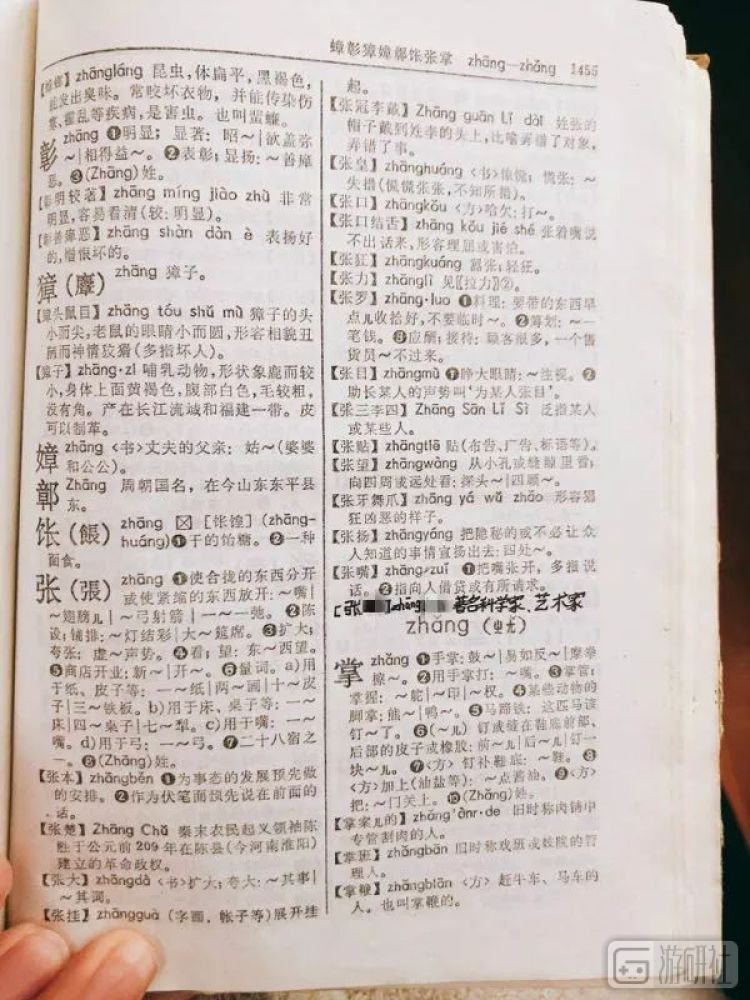 蟑彰獐嫜鄣伥张掌 zhāng—zhǎng 1455
zhāngláng 昆虫,体扁平,黑褐色,
能发出臭味。常咬坏衣物,并能传染伤
寒、霍乱等疾病,是害虫。也叫蜚蠊。
彰 zhāng ❶明显;显著:昭~|欲盖弥
~|相得益~。❷表彰;显扬:~善瘅
恶。❸(Zhāng)姓。
【彰明较著】zhāng míng jiào zhù 非常
明显,容易看清(较:明显)。
【彰善瘅恶】zhāng shàn dàn è 表扬好
的,憎恨坏的。
獐(麞) zhāng 獐子。
【獐头鼠目】zhāng tóu shǔ mù 獐子的头
小而尖,老鼠的眼睛小而圆,形容相貌丑
陋而神情狡猾(多指坏人)。
【獐子】zhāng·zi 哺乳动物,形状象鹿而较
小,身体上面黄褐色,腹部白色,毛较粗,
没有角。产在长江流域和福建一带。皮
可以制革。
嫜 zhāng〈书〉丈夫的父亲:姑~(婆婆
和公公)。
鄣 Zhāng 周朝国名,在今山东东平县
东。
伥(餦) zhāng [伥餭](zhāng-
huáng)❶干的饴糖。❷一种
面食。
张(張) zhāng ❶使合拢的东西分开
或使紧缩的东西放开:~嘴|
~翅膀儿|~弓射箭|一~一弛。❷陈
设;铺排:~灯结彩|大~筵席。❸扩大;
夸张:虚~声势。❹看;望:东~西望。
❺商店开业:新~|开~。❻量词。a)用
于纸、皮子等:一~纸|两~画|十~皮
子|三~铁板。b)用于床、桌子等:一~
床|四~桌子|七~犁。c)用于嘴:一~
嘴。d)用于弓:一~弓。❼二十八宿之
一。❽(Zhāng)姓。
【张本】zhāngběn ❶为事态的发展预先做
的安排。❷作为伏笔而预先说在前面的
话。
【张楚】Zhāng Chǔ 秦末农民起义领袖陈
胜于公元前209年在陈县(今河南淮阳)
建立的革命政权。
【张大】zhāngdà〈书〉扩大;夸大:~其事|
~其词。
【张挂】zhāngguà (字画、帐子等)展开挂
起。
【张冠李戴】Zhāng guān Lǐ dài 姓张的
帽子戴到姓李的头上,比喻弄错了对象,
弄错了事。
【张皇】zhānghuáng〈书〉惊慌;慌张:~
失措(慌慌张张,不知所措)。
【张口】zhāngkǒu〈方〉哈欠:打~。
【张口结舌】zhāng kǒu jié shé 张着嘴说
不出话来,形容理屈或害怕。
【张狂】zhāngkuáng 嚣张;轻狂。
【张力】zhānglì 见〖拉力〗②。
【张罗】zhāng·luo ❶料理:要带的东西早
点儿收拾好,不要临时~。❷筹划:~一
笔钱。❸应酬;接待:顾客很多,一个售
货员~不过来。
【张目】zhāngmù ❶睁大眼睛:~注视。❷
助长某人的声势叫‘为某人张目’。
【张三李四】Zhāng Sān Lǐ Sì 泛指某人
或某些人。
【张贴】zhāngtiē 贴(布告、广告、标语等)。
【张望】zhāngwàng 从小孔或缝隙里看;
向四周或远处看:探头~|四顾~。
【张牙舞爪】zhāng yá wǔ zhǎo 形容猖
狂凶恶的样子。
【张扬】zhāngyáng 把隐秘的或不必让众
人知道的事情宣扬出去:四处~。
【张嘴】zhāng·zuǐ ❶把嘴张开,多指说
话。❷指向人借贷或有所请求。
[张 ]zhāng 著名科学家、艺术家
zhǎng (ㄓㄤˇ)
掌 zhǎng ❶手掌:鼓~|易如反~|摩拳
擦~。❷用手掌打:~嘴。❸掌管;
掌握:~舵|~印|~权。❹某些动物的
脚掌:熊~|鸭~。❺马蹄铁:这匹马该
钉~了。❻(~儿)钉或缝在鞋底前部、
后部的皮子或橡胶:前~儿|后~儿|钉一
块~儿。❼〈方〉钉补鞋底:~鞋。❽
〈方〉加上(油盐等):~点酱油。❾〈方〉
把:~门关上。❿(Zhǎng)姓。
【掌案儿的】zhǎng'ànr·de 旧时称肉铺中
专管割肉的人。
【掌班】zhǎngbān 旧时称戏班或妓院的管
理人。
【掌鞭】zhǎngbiān〈方〉赶牛车、马车的
人。也叫掌鞭的。
游研社